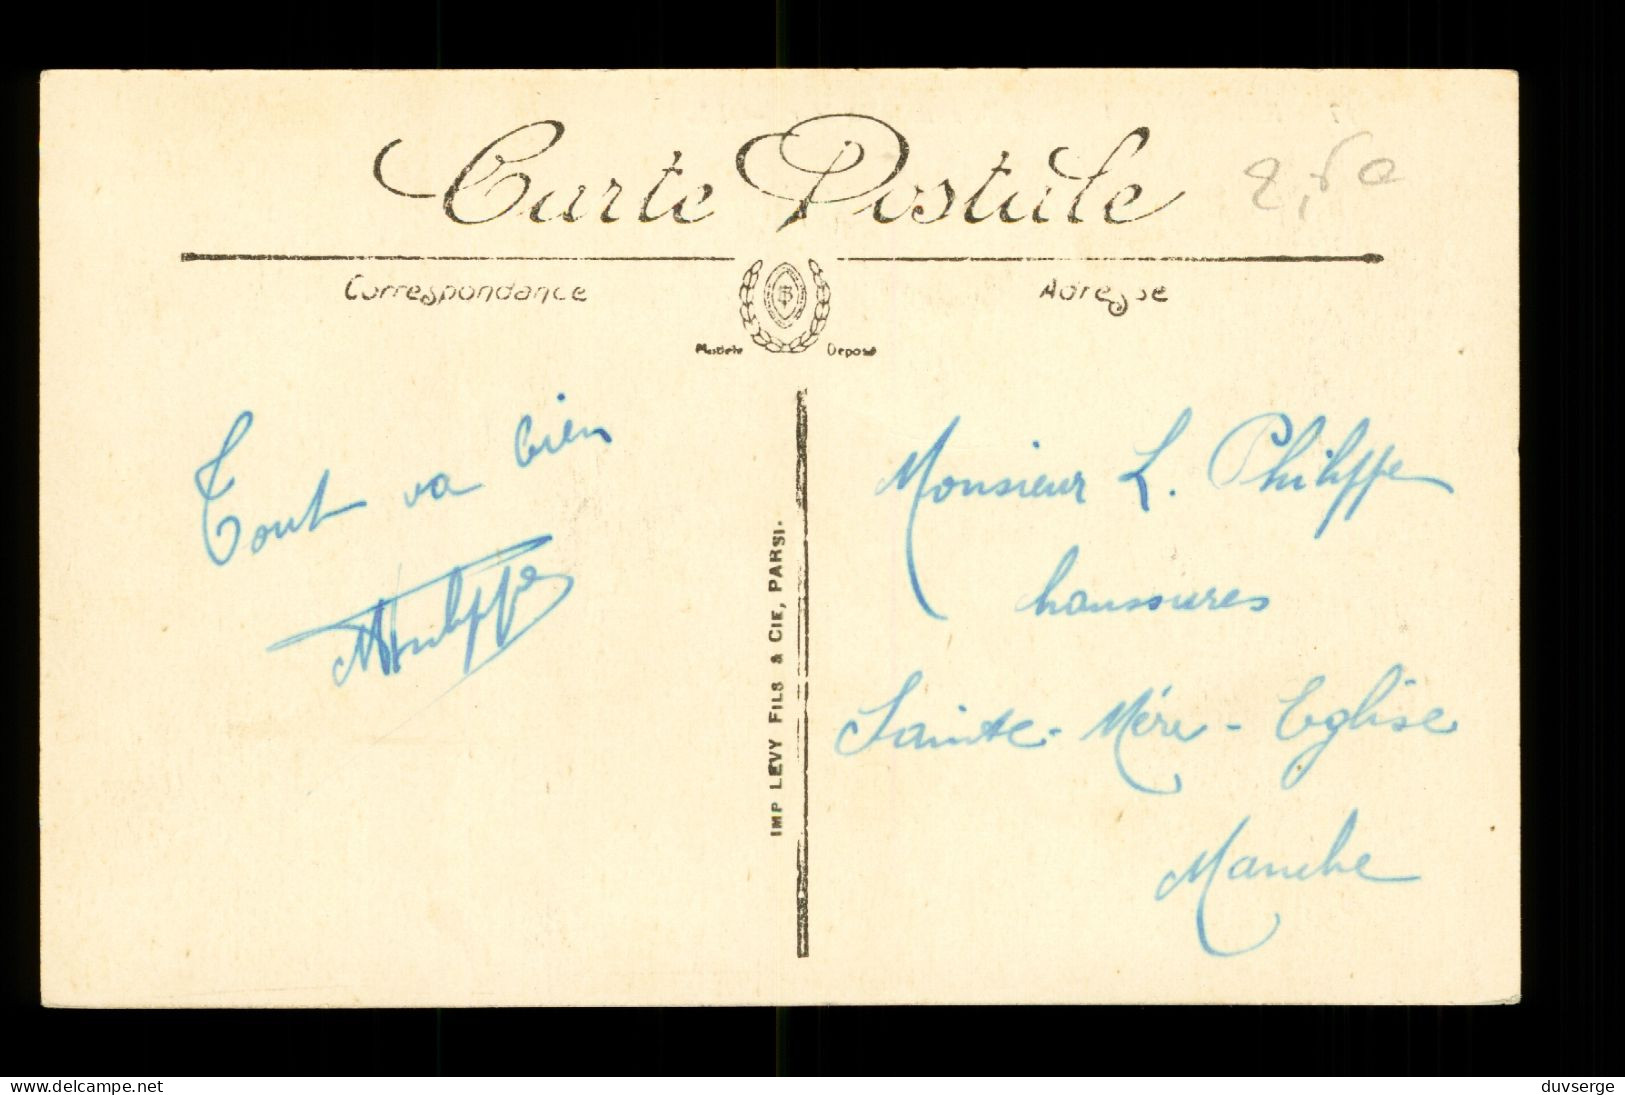 Carte Postale
2,50
Correspondance
Adresse
Modèle Déposé
Tout va bien
Philippe
IMP LEVY FILS & CIE, PARSI.
Monsieur L. Philippe
chaussures
Sainte-Mère-Eglise
Manche
delcampe.net
duvserge